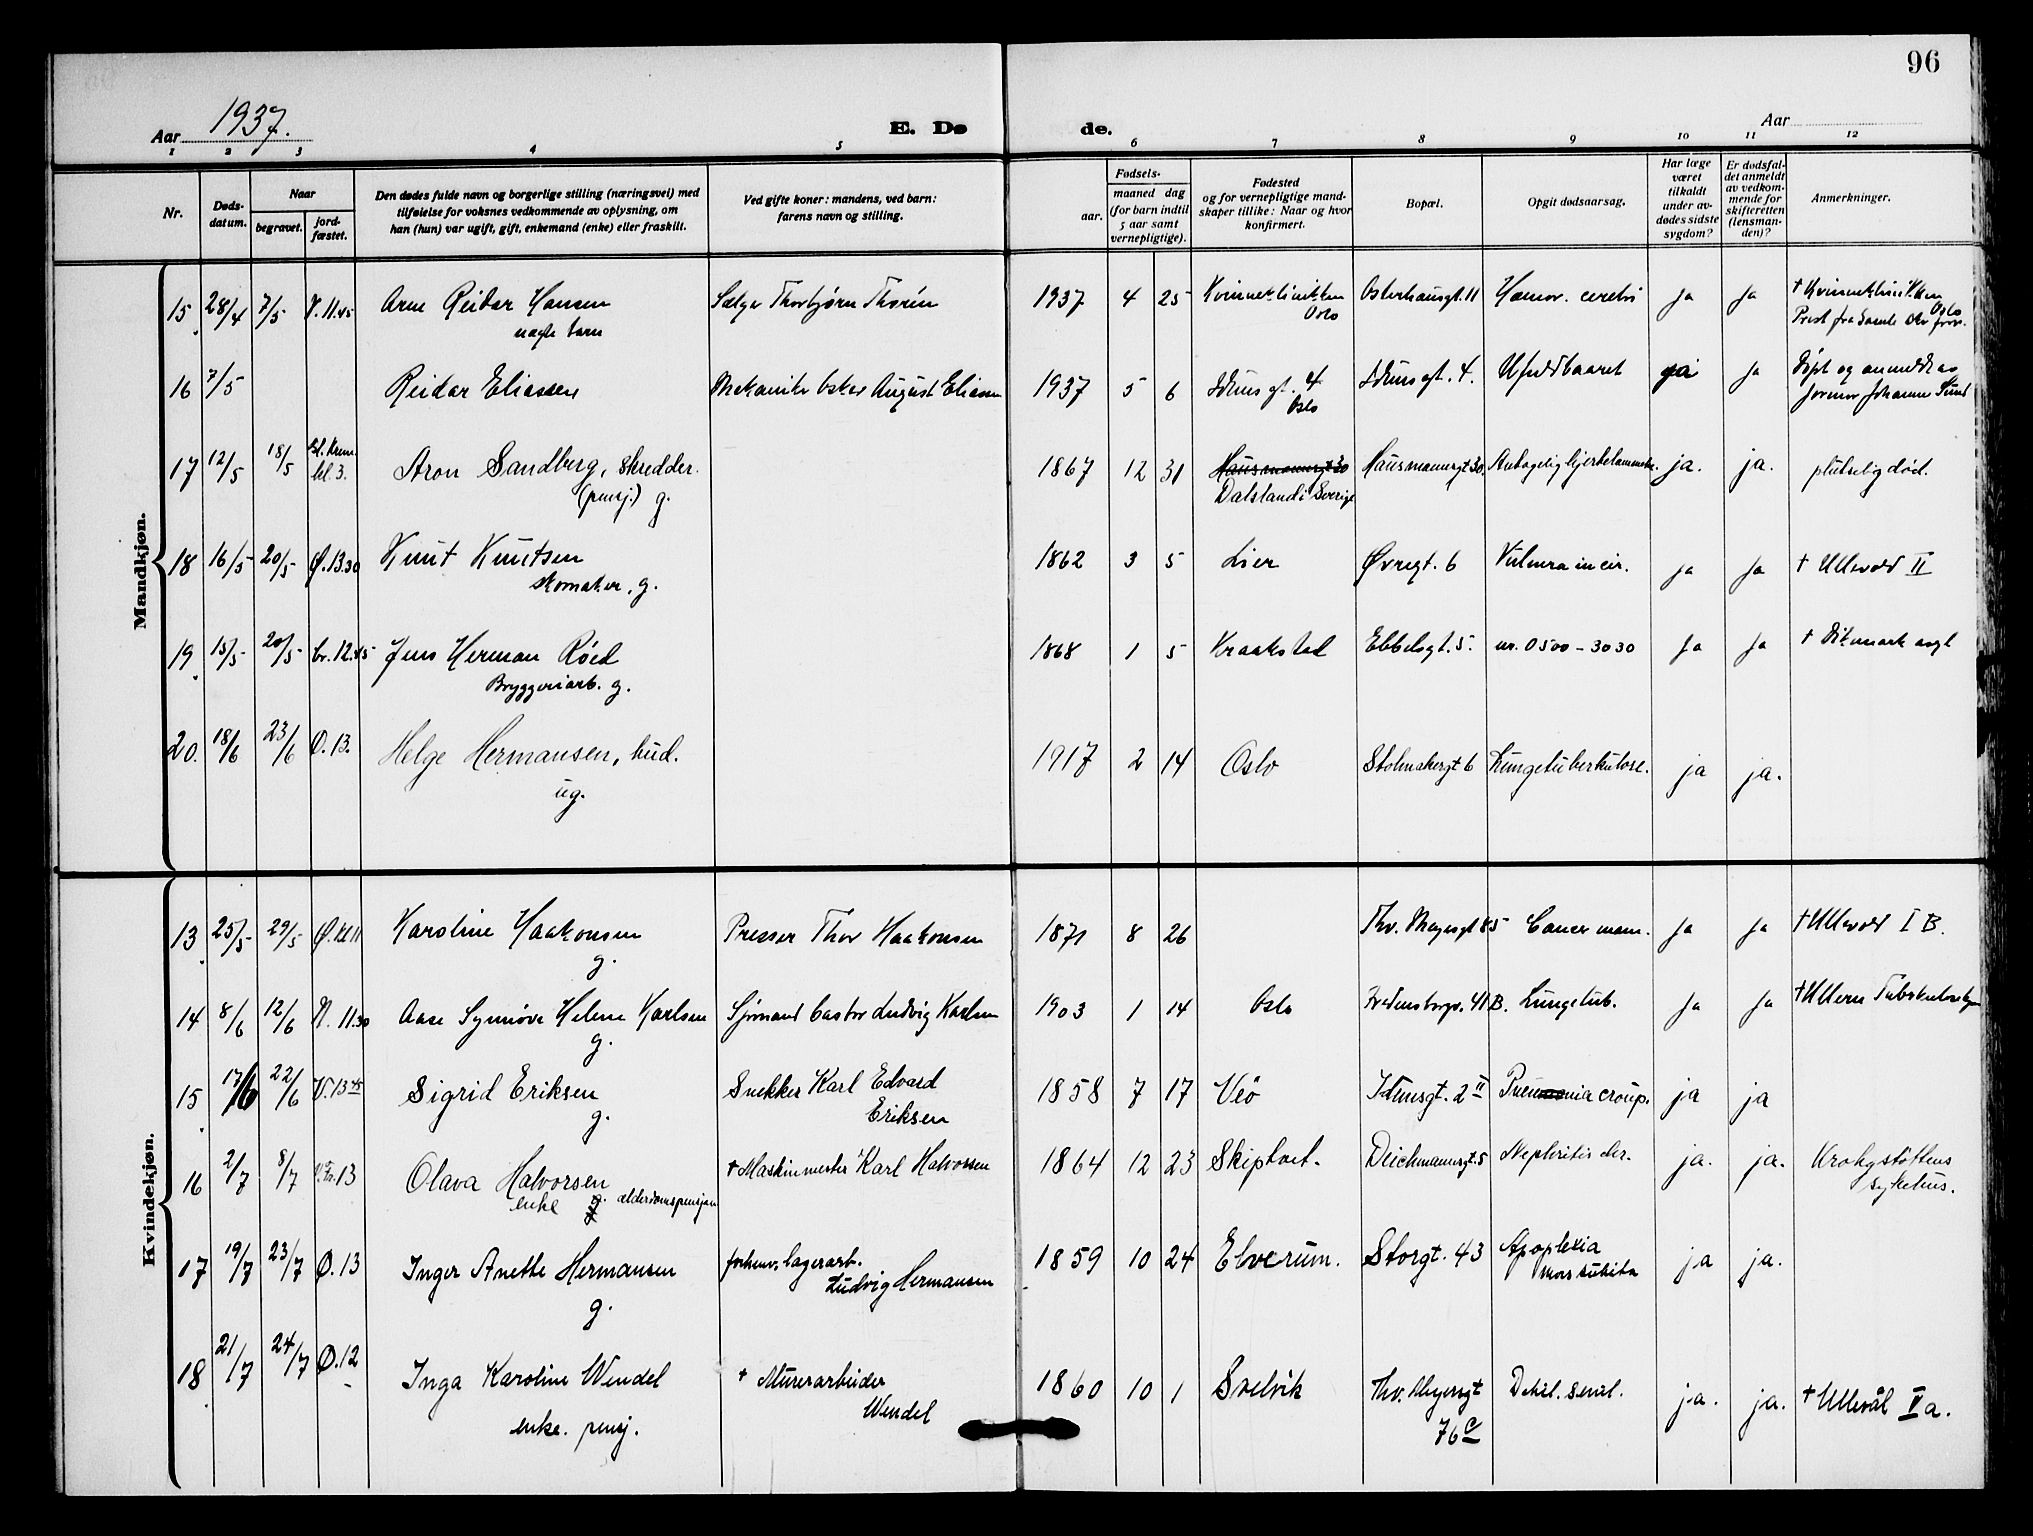 96
Aar 1937.
E. Dø de.
Aar
1 2 3 4 5 6 7 8 9 10 11 12
Nr.
Døds-
datum.
Naar
begravet.
jord-
fæstet.
Den dødes fulde navn og borgerlige stilling (næringsvei) med
tilføielse for voksnes vedkommende av oplysning, om
han (hun) var ugift, gift, enkemand (enke) eller fraskilt.
Ved gifte koner: mandens, ved barn:
farens navn og stilling.
Fødsels-
aar.
maaned dag
(for barn indtil
5 aar samt
vernepligtige).
Fødested
og for vernepligtige mand-
skaper tillike: Naar og hvor
konfirmert.
Bopæl.
Opgit dødsaarsag.
Har læge
været
tilkaldt
under av-
dødes sidste
sygdom?
Er dødsfal-
det anmeldt
av vedkom-
mende for
skifteretten
(lensman-
den)?
Anmerkninger.
Mandkjøn.
15 28/4 7/5 V. 11.45 Arne Reidar Hansen Selger Thorbjørn Thorén 1937 4 25 Kvinneklinikken Osterhausgt. 11 Hæmor. cerebri ja ja † Kvinneklinikken
uegte barn Oslo Oslo
Prest fra Gamle Aker
16 7/5 Reidar Eliassen Mekaniker Oskar August Eliassen 1937 5 6 Idunsgt. 4 Idunsgt. 4. Ufuldbaaret ja ja Døpt og anmeldt av
Oslo Johanne
17 12/5 18/5 Krem. Aron Sandberg, skredder. 1867 12 31 Hausmannsgt 30 Hausmannsgt 30. Antagelig hjertelammelse. ja. ja. plutselig død.
kl. 3. (pensj.) g. Dalsland i Sverige
18 16/5 20/5 Ø. 13.30 Knut Knutsen 1862 3 5 Lier Øvregt. 6 Vulnera incis. ja ja † Ullevål II
skomaker, g.
19 15/5 20/5 Cr. 12.45 Jens Herman Röed 1868 1 5 Kraakstad Ebbelsgt. 5. nr. 0500 - 3030 ja ja † Dikemark asyl
Bryggeriarb. g.
20. 18/6 23/6 Ø. 13. Helge Hermansen, bud. 1917 2 14 Oslo Stolmakergt 6 Lungetuberkulose. ja ja.
ug.
Kvindekjøn.
13 25/5 29/5 Ø. kl 11 Karoline Haakonsen Presser Thor Haakonsen 1871 8 26 Thv. Meyersgt 85 Cancer mam. ja ja † Ullevål I B.
g.
14 8/6 12/6 N. 11.30 Aase Synnöve Helene Karlsen Sjömand Castor Ludvig Karlsen 1903 1 14 Oslo Fredensborgv. 41 B. Lungetub. ja ja † Ullern
g.
15 17/6 22/6 V. 13 45 Sigrid Eriksen Snekker Karl Edvard 1858 7 17 Veö Idunsgt. 2 II Pneumonia croup. ja ja
g. Eriksen
16 2/7 8/7 13 Olava Halvorsen † Maskinmester Karl Halvorsen 1864 12 23 Skiptvet. Deichmannsgt. 5 Nephritis chr. ja. ja. Krohgstöttens
enke g. alderdomspensjon sykehus.
17 19/7 23/7 Ø. 13 Inger Anette Hermansen forhenv. lagerarb. 1859 10 24 Elverum. Storgt. 43 Apoplexia ja ja.
g. Ludvig Hermansen Mors subita
18 21/7 24/7 Ø. 12 Inga Karoline Wendel † Murerarbeider 1860 10 1 Svelvik Thv. Meyersgt Debil. senil. ja. ja. † Ullevål V a.
enke. pensj. Wendel 76 c